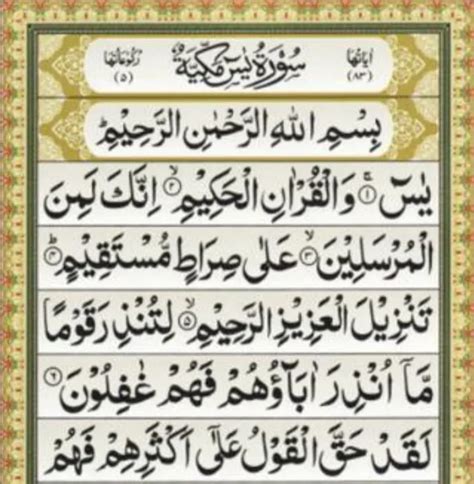 اٰيَاتُهَا (٨٣) سُوْرَةُ يٰسٓ مَكِّيَّةٌ رُكُوْعَاتُهَا (٥)
بِسْمِ اللّٰهِ الرَّحْمٰنِ الرَّحِيْمِ ؕ
يٰسٓ ۚ ﴿١﴾ وَالْقُرْاٰنِ الْحَكِيْمِ ۙ ﴿٢﴾ اِنَّكَ لَمِنَ
الْمُرْسَلِيْنَ ۙ ﴿٣﴾ عَلٰى صِرَاطٍ مُّسْتَقِيْمٍ ؕ ﴿٤﴾
تَنْزِيْلَ الْعَزِيْزِ الرَّحِيْمِ ۙ ﴿٥﴾ لِتُنْذِرَ قَوْمًا
مَّاۤ اُنْذِرَ اٰبَآؤُهُمْ فَهُمْ غٰفِلُوْنَ ﴿٦﴾
لَقَدْ حَقَّ الْقَوْلُ عَلٰٓى اَكْثَرِهِمْ فَهُمْ